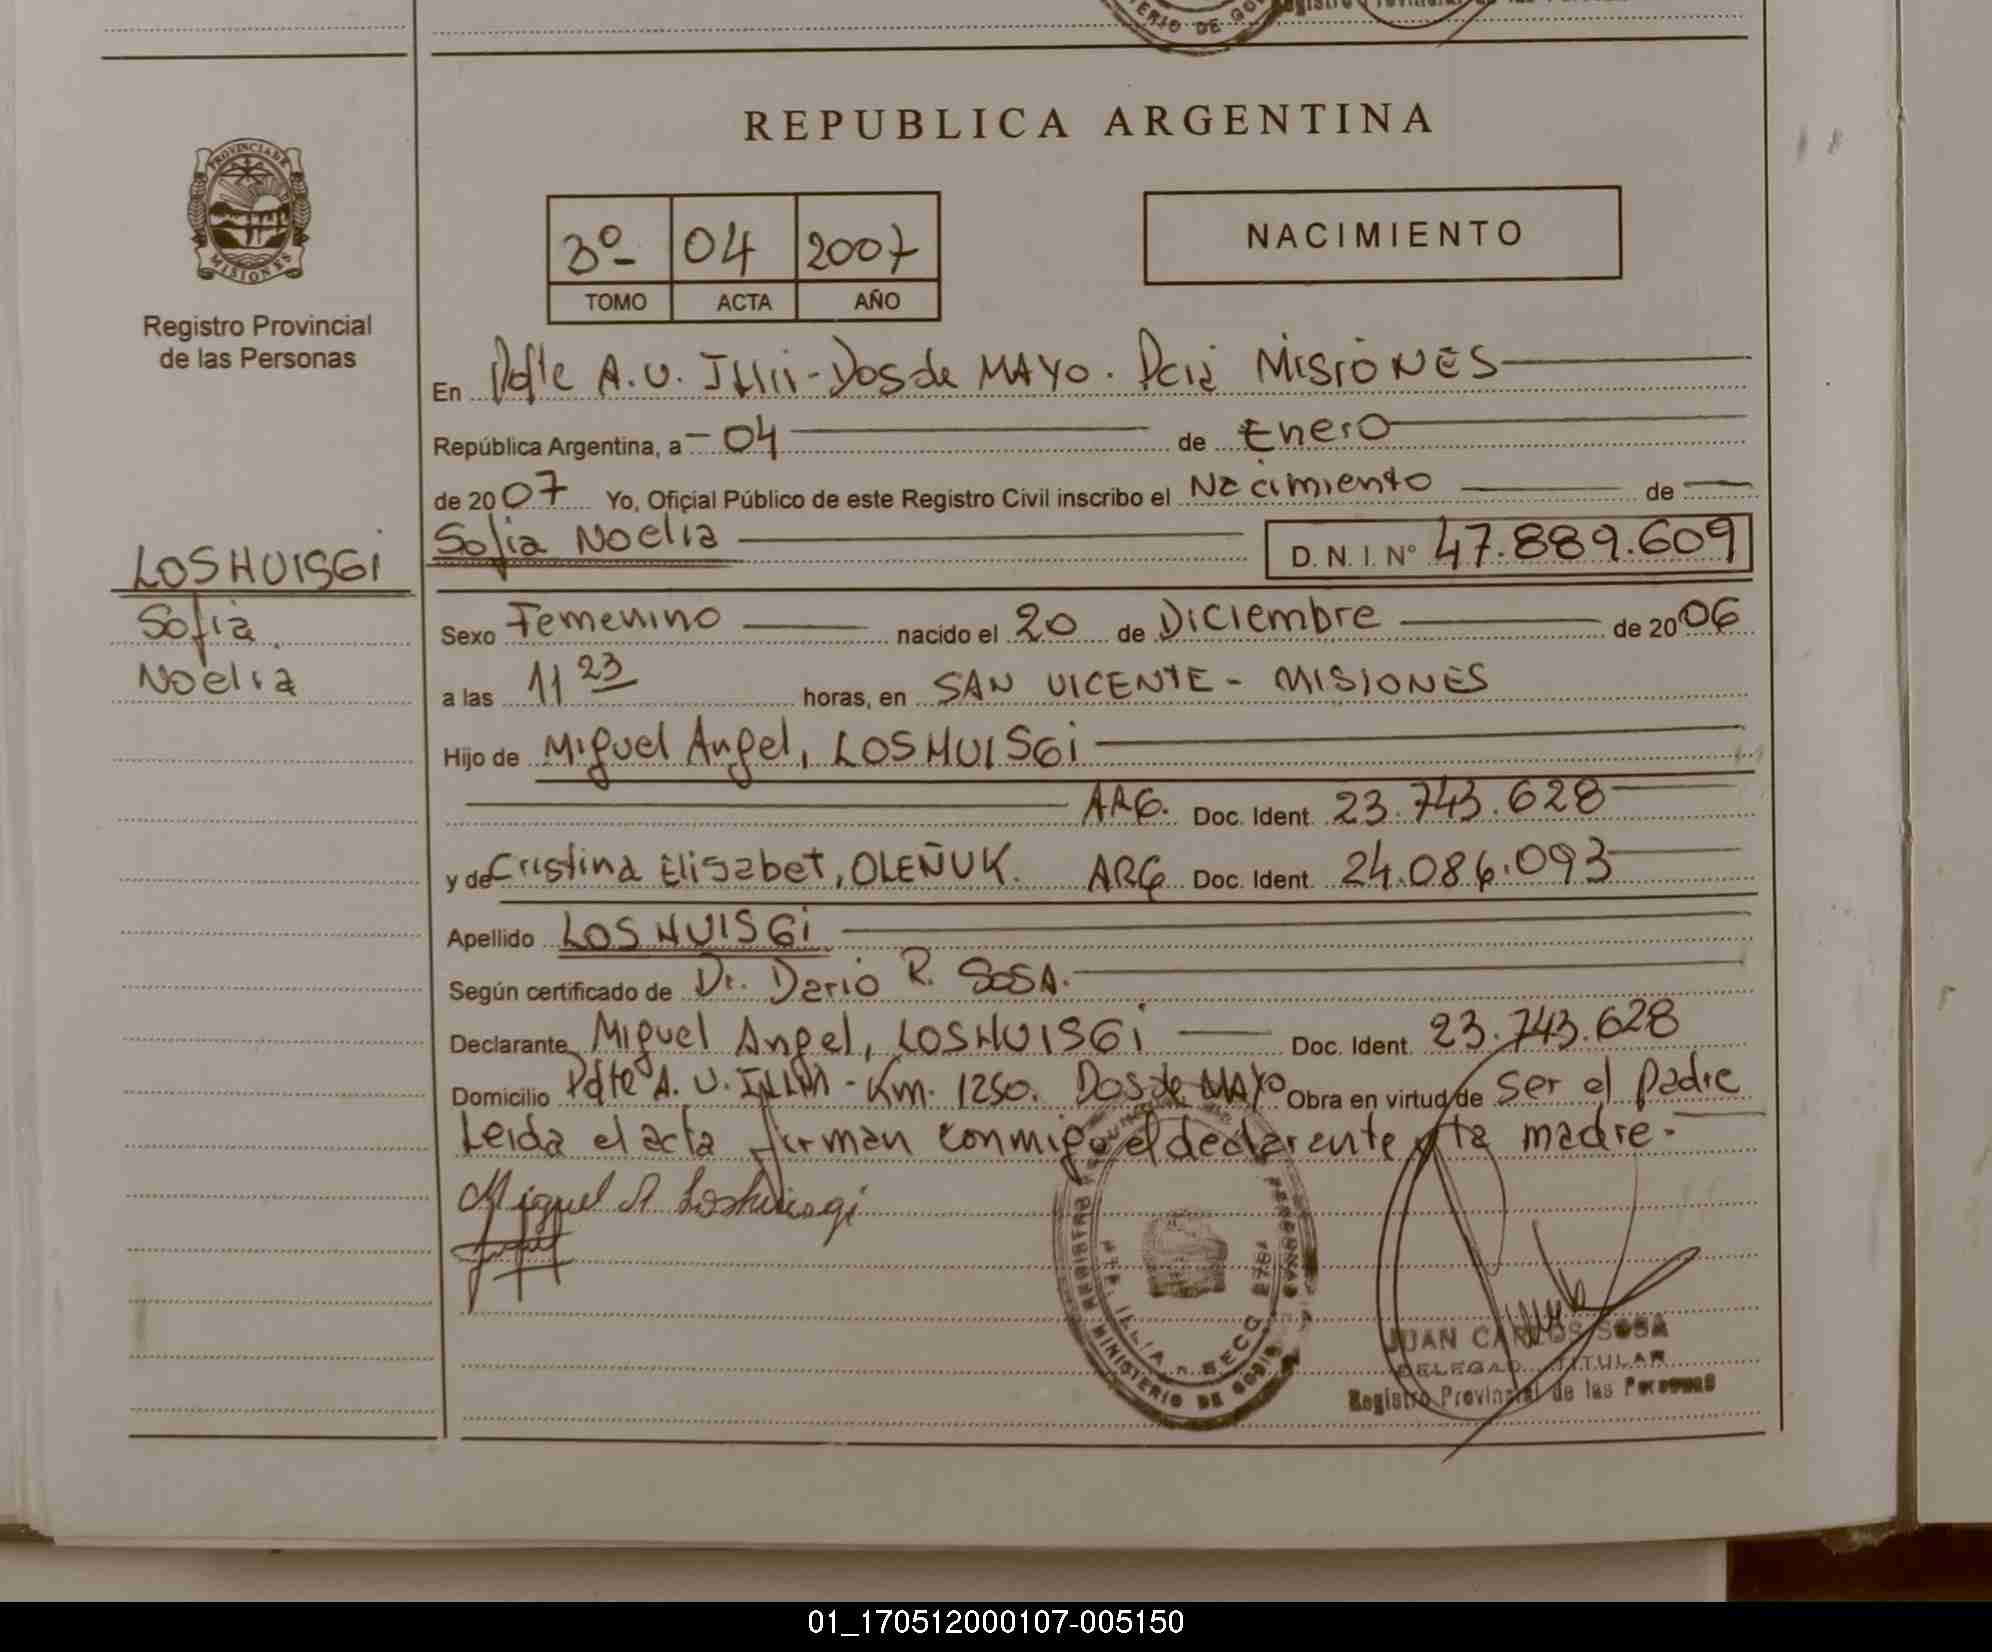 REPUBLICA ARGENTINA
PROVINCIA DE MISIONES
Registro Provincial
de las Personas
3º 04 2007
TOMO ACTA AÑO
NACIMIENTO
En Pdte A.U. Illia - Dos de MAYO. Pcia MISIONES
República Argentina, a 04 de Enero
de 2007 Yo, Oficial Público de este Registro Civil inscribo el Nacimiento de
Sofia Noelia D. N. I. Nº 47.889.609
LOSHUISGi
Sofia
Noelia
Sexo Femenino nacido el 20 de Diciembre de 2006
a las 11 23 horas, en SAN VICENTE - MISIONES
Hijo de Miguel Angel, LOSHUISGi
ARG. Doc. Ident. 23.743.628
y de Cristina Elisabet, OLEÑUK. ARG Doc. Ident. 24.086.093
Apellido LOSHUISGi
Según certificado de Dr. Dario R. SOSA.
Declarante Miguel Angel, LOSHUISGi Doc. Ident. 23.743.628
Domicilio Pdte A. U. ILLIA - Km. 1250. Dos de MAYO Obra en virtud de ser el padre
Leida el acta firman conmigo el declarante y la madre.
Miguel A. Loshuisgi
MINISTERIO DE GOB
JUAN CARLOS SOSA
DELEGADO TITULAR
Registro Provincial de las Personas
01_170512000107-005150